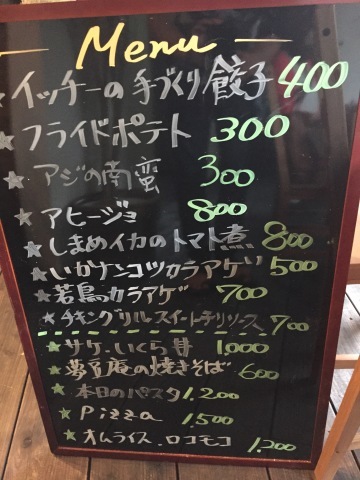 Menu
★イッチーの手づくり餃子 400
★フライドポテト 300
★アジの南蛮 300
★アヒージョ 800
★しまめイカのトマト煮 800
★いかナンコツカラアゲ 500
★若鳥カラアゲ 700
★チキングリルスイートチリソース 700
★サケ・いくら丼 1,000
★夢豆庵の焼きそば 600
★本日のパスタ 1,200
★Pizza 1,500
★オムライス・ロコモコ 1,200